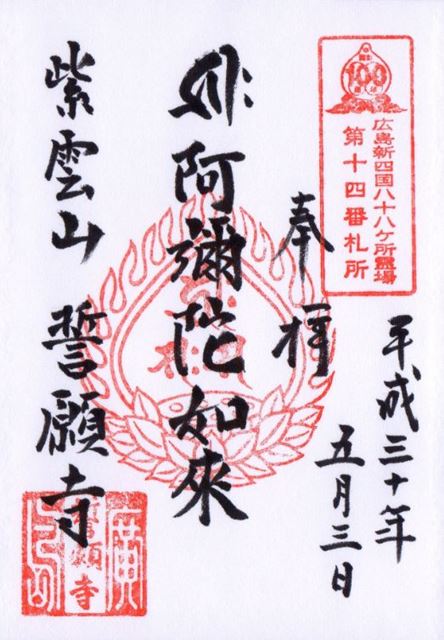 100
広島新四国八十八ケ所霊場
第十四番札所
平成三十年
五月三日
奉拝
阿彌陀如来
紫雲山 誓願寺
廣島
誓願寺